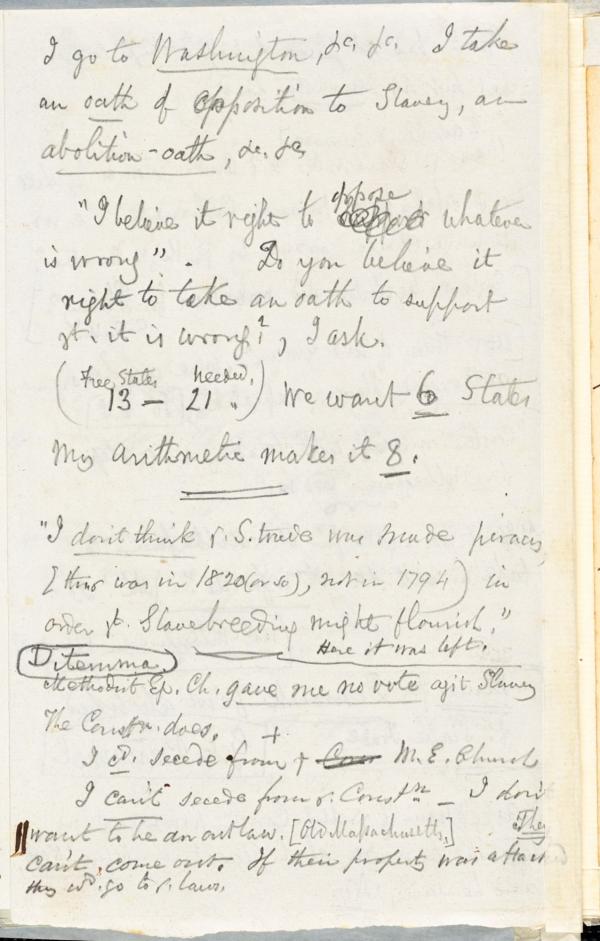 I go to Washington, &c. &c. I take
an oath of opposition to Slavery, an
abolition-oath, &c. &c
oppose
"I believe it right to whatever
is wrong". Do you believe it
right to take an oath to support
yt. it is wrong?, I ask.
Free States needed.
(13 — 21 ") We want 6 States
My arithmetic makes it 8.
"I don't think ye. S. trade was made piracy,
[this was in 1820 (or so), not in 1794) in
order yt. Slavebreeding might flourish."
Here it was left.
Dilemma.
Methodist Ep. Ch. gave me no vote agst Slavery
The Constn. does.
+
I cd. secede from ye M. E. Church
I can't secede from ye. Constn — I don't
want to be an outlaw. [Old Massachusetts.] They
can't come out. If their property was attack
they wd. go to ye. laws.